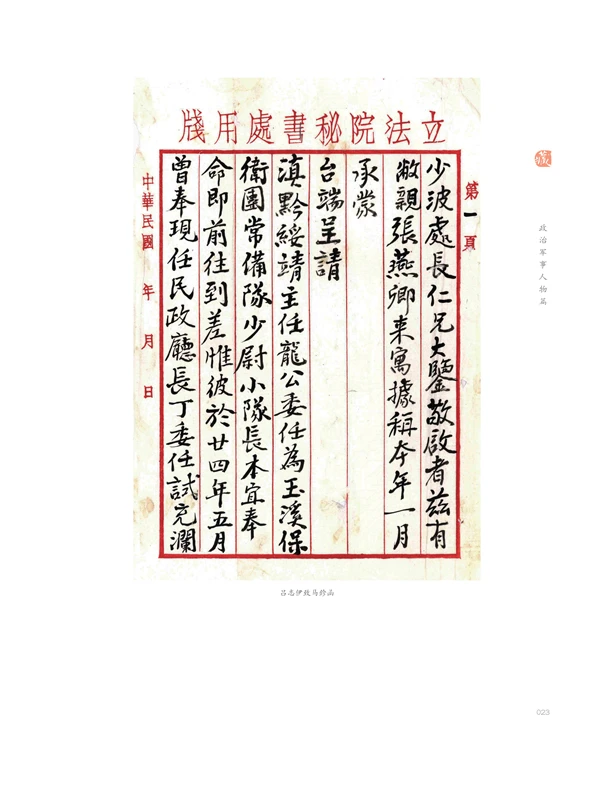 立法院秘書處用牋
第一頁
少波處長仁兄大鑒敬啟者茲有
敝親張燕卿來寓據稱本年一月
承蒙
台端呈請
滇黔綏靖主任龍公委任為玉溪保
衛團常備隊少尉小隊長本宜奉
命即前往到差惟彼於廿四年五月
曾奉現任民政廳長丁委任試充瀾
中華民國 年 月 日
政治军事人物篇
吕志伊致马鉁函
023